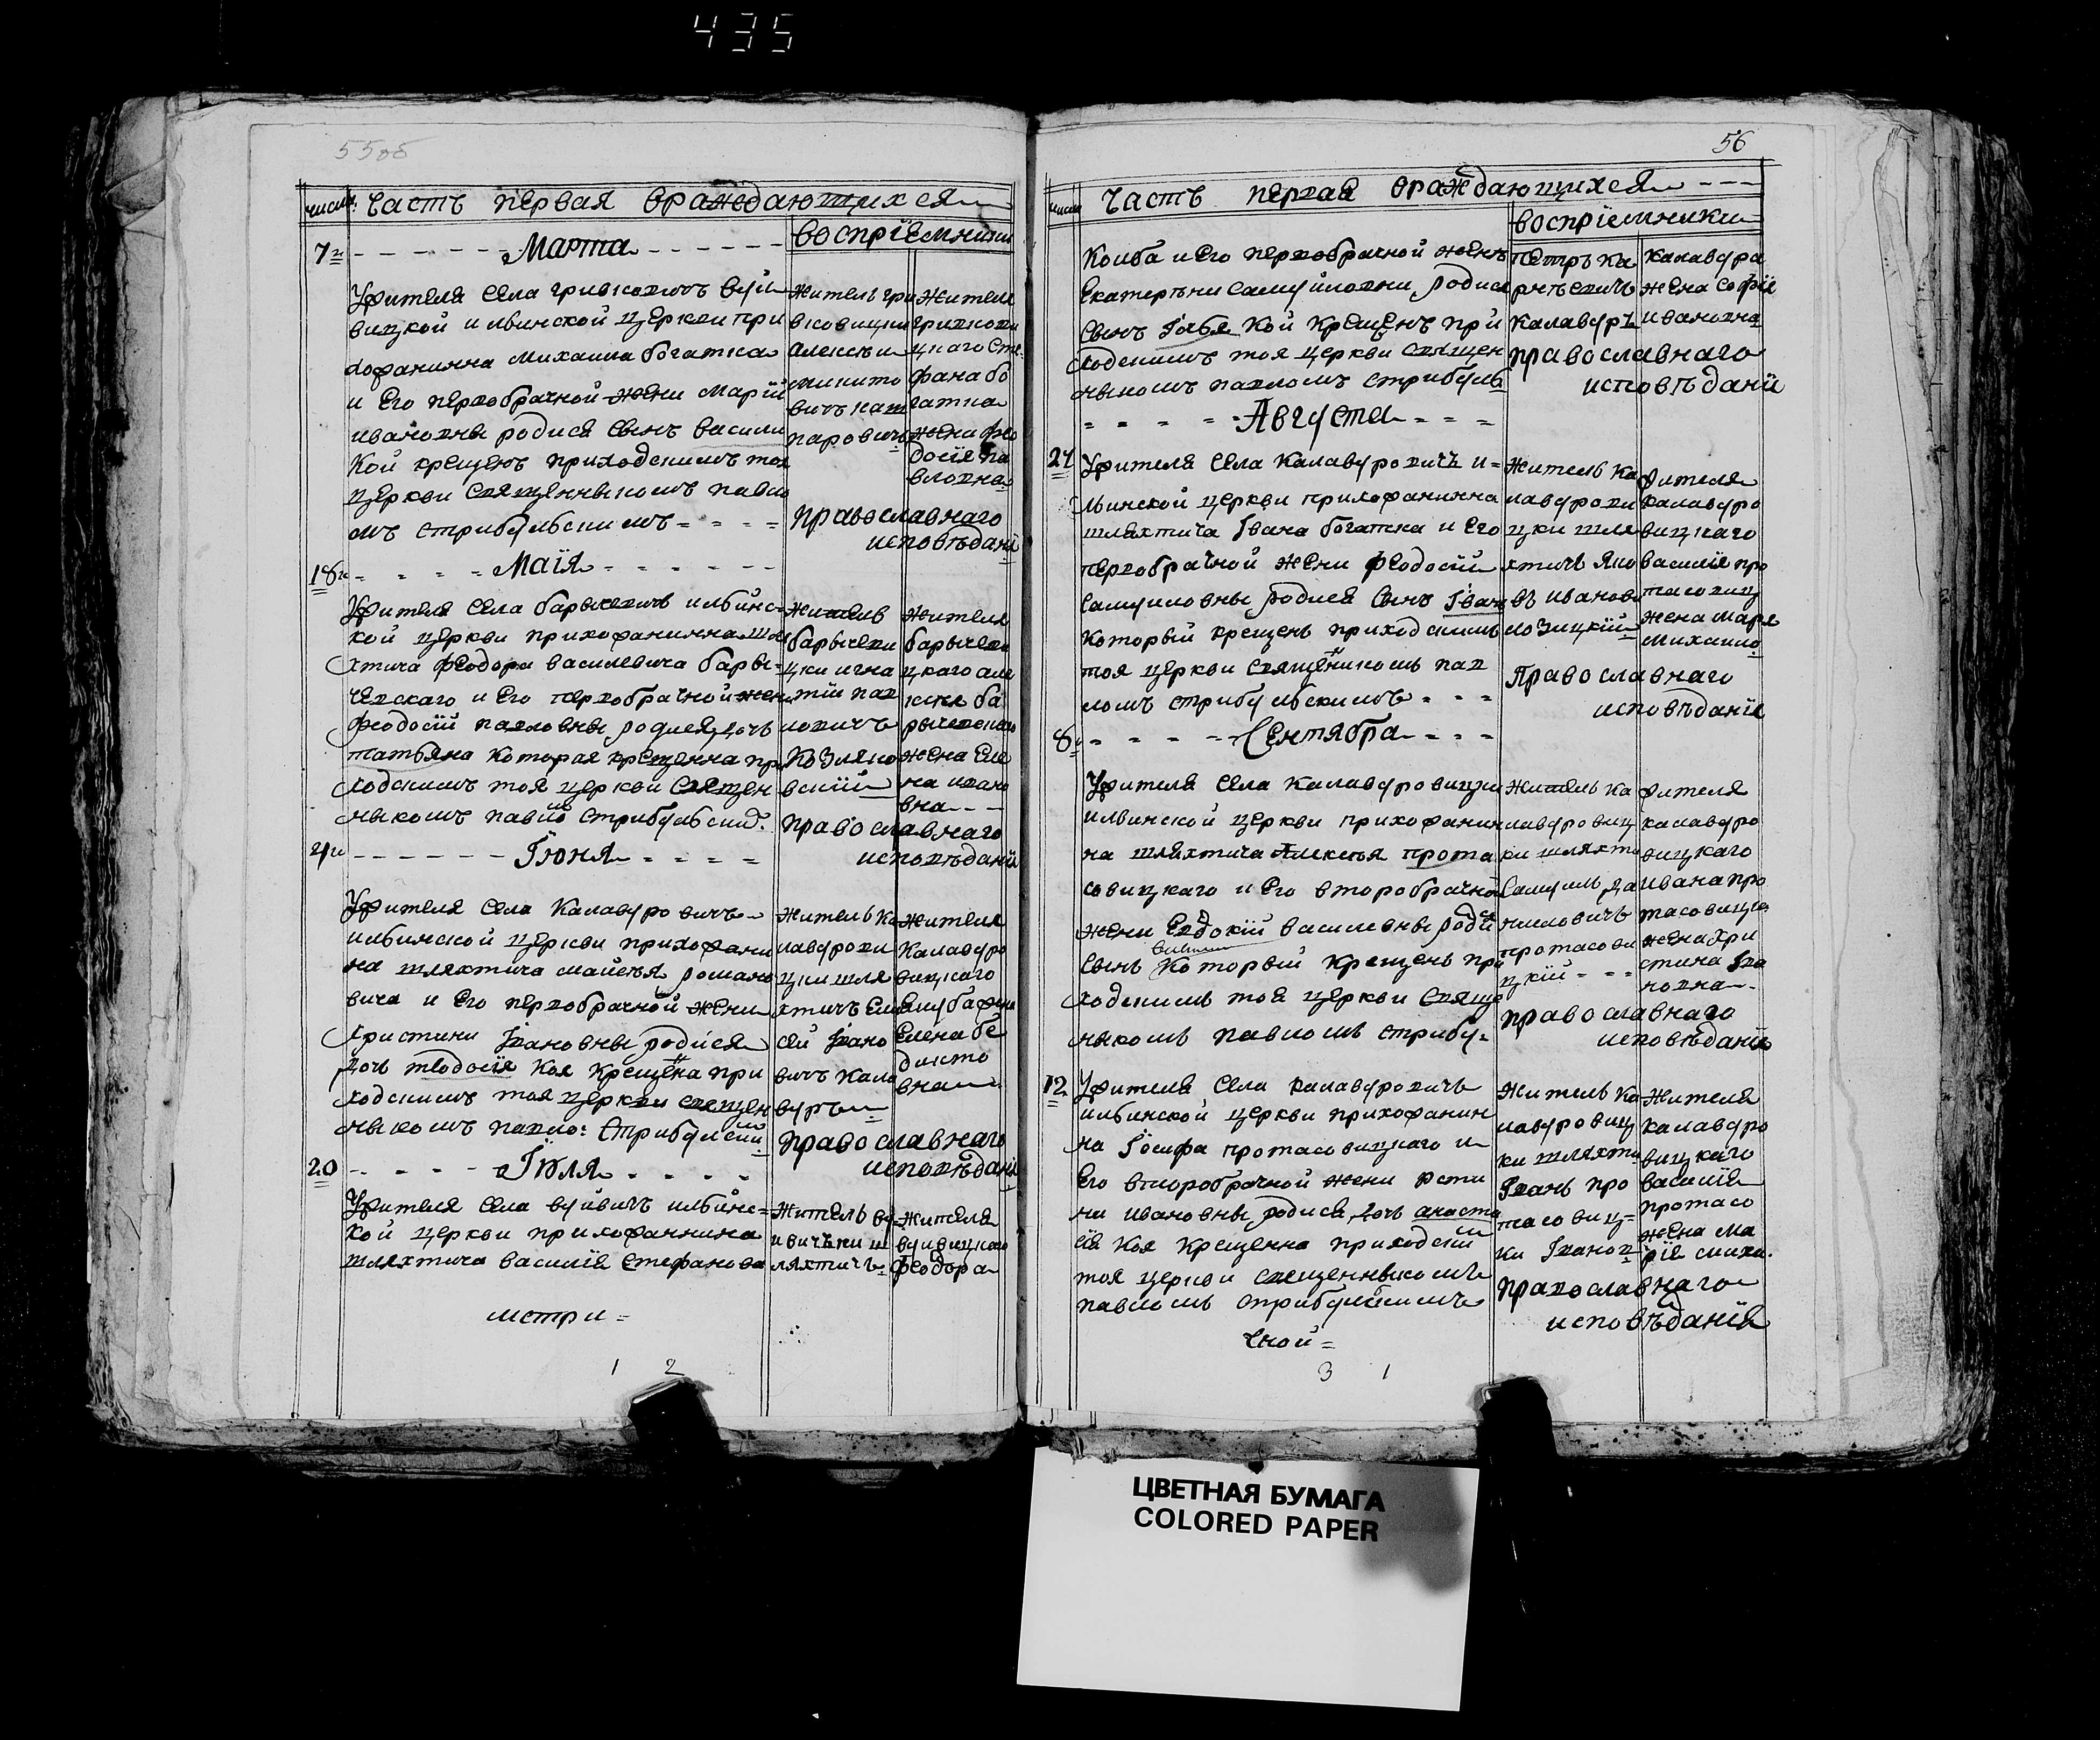 435
55об
числа. Часть первая ораждающихся
восприемники
7го Марта
Ужителя села гривковичъ вуй
вицкой илвинской церкви при
хожанинна михаила богатка
и Его первобрачной жени марiй
ивановны родися сынъ васили
Кой крещенъ приходскимъ тоя
церкви священныкомъ павло
мъ стрибулскимъ
житель гри
вковицки
алексѣи
никито
вичъ
паровичъ
жителя
гривкови
цкаго сте
фана бо
гатка
жена фео
досiя па
вловна
православнаго
исповѣданi
18го Маiя
Ужителя села барычевичъ илбинс=
кой церкви прихожанинна шля
хтича феодора василевича бары=
чевскаго и Его первобрачной жен
феодосiй павловны родися дочъ
татьяна которая крещенна при
ходскимъ тоя церкви священ
ныкомъ павло стрибулский.
житель
барычеви
цки игна
тiй пав
ловичъ
козляко
вский
жителя
барычеви
цкаго але
ксѣя ба
рычевскаго
жена еле
на ивано
вна
православнаго
исповѣданiя
Iюня
Ужителя села Калавуровичъ
илбинской церкви прихожани
на шляхтича майсѣя романо
вича и Его первобрачной жени
христини Iвановны родися
дочъ феодосiя Коя крещена при
ходскимъ тоя церкви священ
ныкомъ павло: стрибулский
житель ка
лавурови
цки шля
хтичъ ели
сѣй Iвано
вичъ кала
вуръ
жителя
Калавуро
вицкаго
Елена бе
дикто
вна
православнаго
исповѣданiя
20 Iюля
Ужителя села вуйвичъ илбинс=
кой церкви прихожаннина
шляхтича василiя стефанова
житель ву
ивичъки ш
ляхтичъ
жителя
вуивицкаго
феодора
метри=
1 2
56
числа Часть первая ораждающихся
восприемники
Колба и Его первобрачной женъ
Екатерѣни самуйловни родися
сынъ Кой крещенъ при
ходскимъ тоя церкви священ
ныкомъ павломъ стрибулъ
петръ ка
калавуръ
калавура
жена софiя
ивановна
православнаго
исповѣданiя
Августа
Ужителя села Калавуровичъ и=
лвинской церкви прихожанинна
шляхтича Iвана богатка и Его
первобрачной жени феодосiй
самуиловны родися сынъ Iванъ
который крещенъ приходскимъ
тоя церкви священикомъ пав
ломъ стрибулскимъ
житель ка
лавурови
цки шля
хтичъ яко
въ иванови
лозицкiй
жителя
калавуро
вицкаго
василiя про
тасовиц
жена марiя
михаило
Православнаго
исповѣданiя
8го Сентября
Ужителя села Калавуровицки
илвинской церкви прихожанин
на шляхтича Алексѣя прота
совицкаго и Его второбрачной
жени Евдокiй василевны роди
сынъ который крещенъ при
ходскимъ тоя церкви свяще
ныкомъ павломъ стрибу=
житель ка
лавуровиц
ки шляхти
самуилъ да
ниловичъ
протасови
цкiй
жителя
калавуро
вицкаго
ивана про
тасовицка
жена хри
стина Iва
новна
православнаго
исповѣданiя
12 Ужителя села калавуровичъ
илбинской церкви прихожанин
на Iосифа протасовицкаго и
Его второбрачной жени юсти
ни ивановны родися дочъ анаста
сiя Коя крещенна приходский
тоя церкви священныкомъ
павломъ стрибулскимъ
житель ка
лавуровиц
ки шляхти
Iванъ про
тасовиц=
ки Iванов
жителя
калавуро
вицкаго
василiя
протасо
жена ма
рiя миха.
православнаго
исповѣданiя
чной=
3 1
ЦВЕТНАЯ БУМАГА
COLORED PAPER